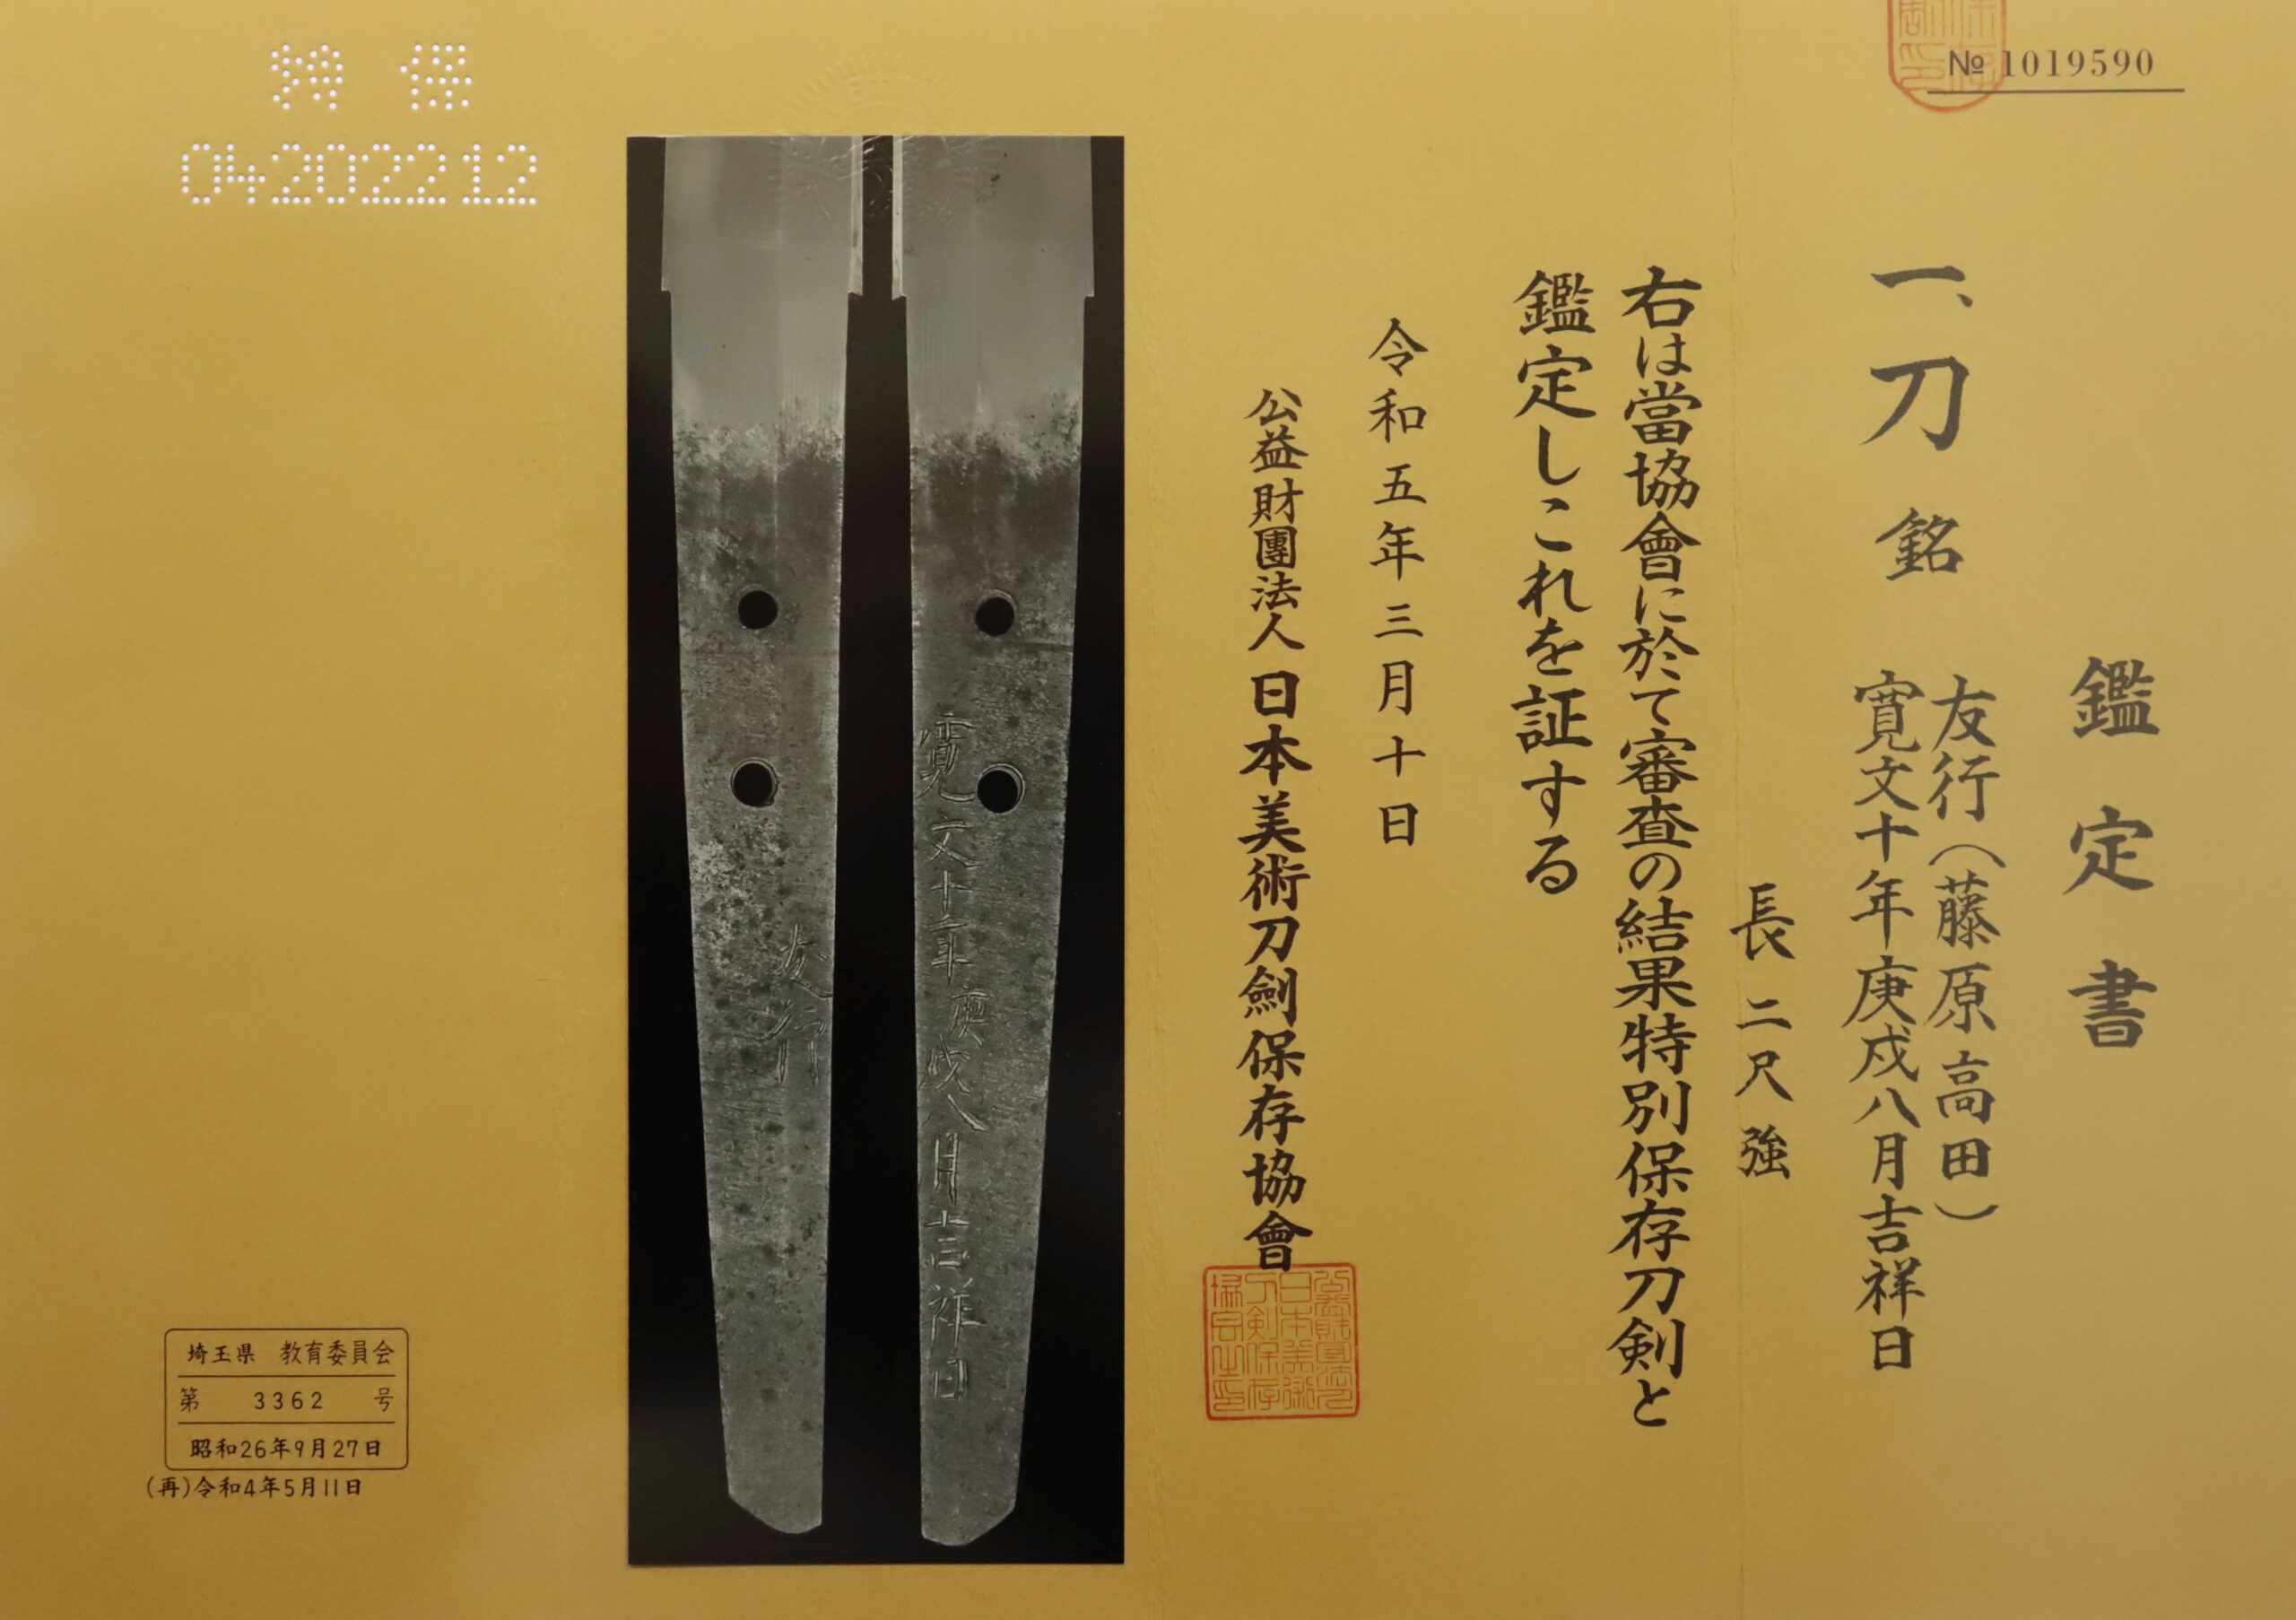 № 1019590
鑑定書
一、刀 銘 友行(藤原高田)
寛文十年庚戌八月吉祥日
長二尺強
右は當協會に於て審査の結果特別保存刀剣と
鑑定しこれを証する
令和五年三月十日
公益財團法人日本美術刀劍保存協會
寛文十年庚戌八月吉祥日
友行
特保
04202212
埼玉県 教育委員会
第 3362 号
昭和26年9月27日
(再)令和4年5月11日